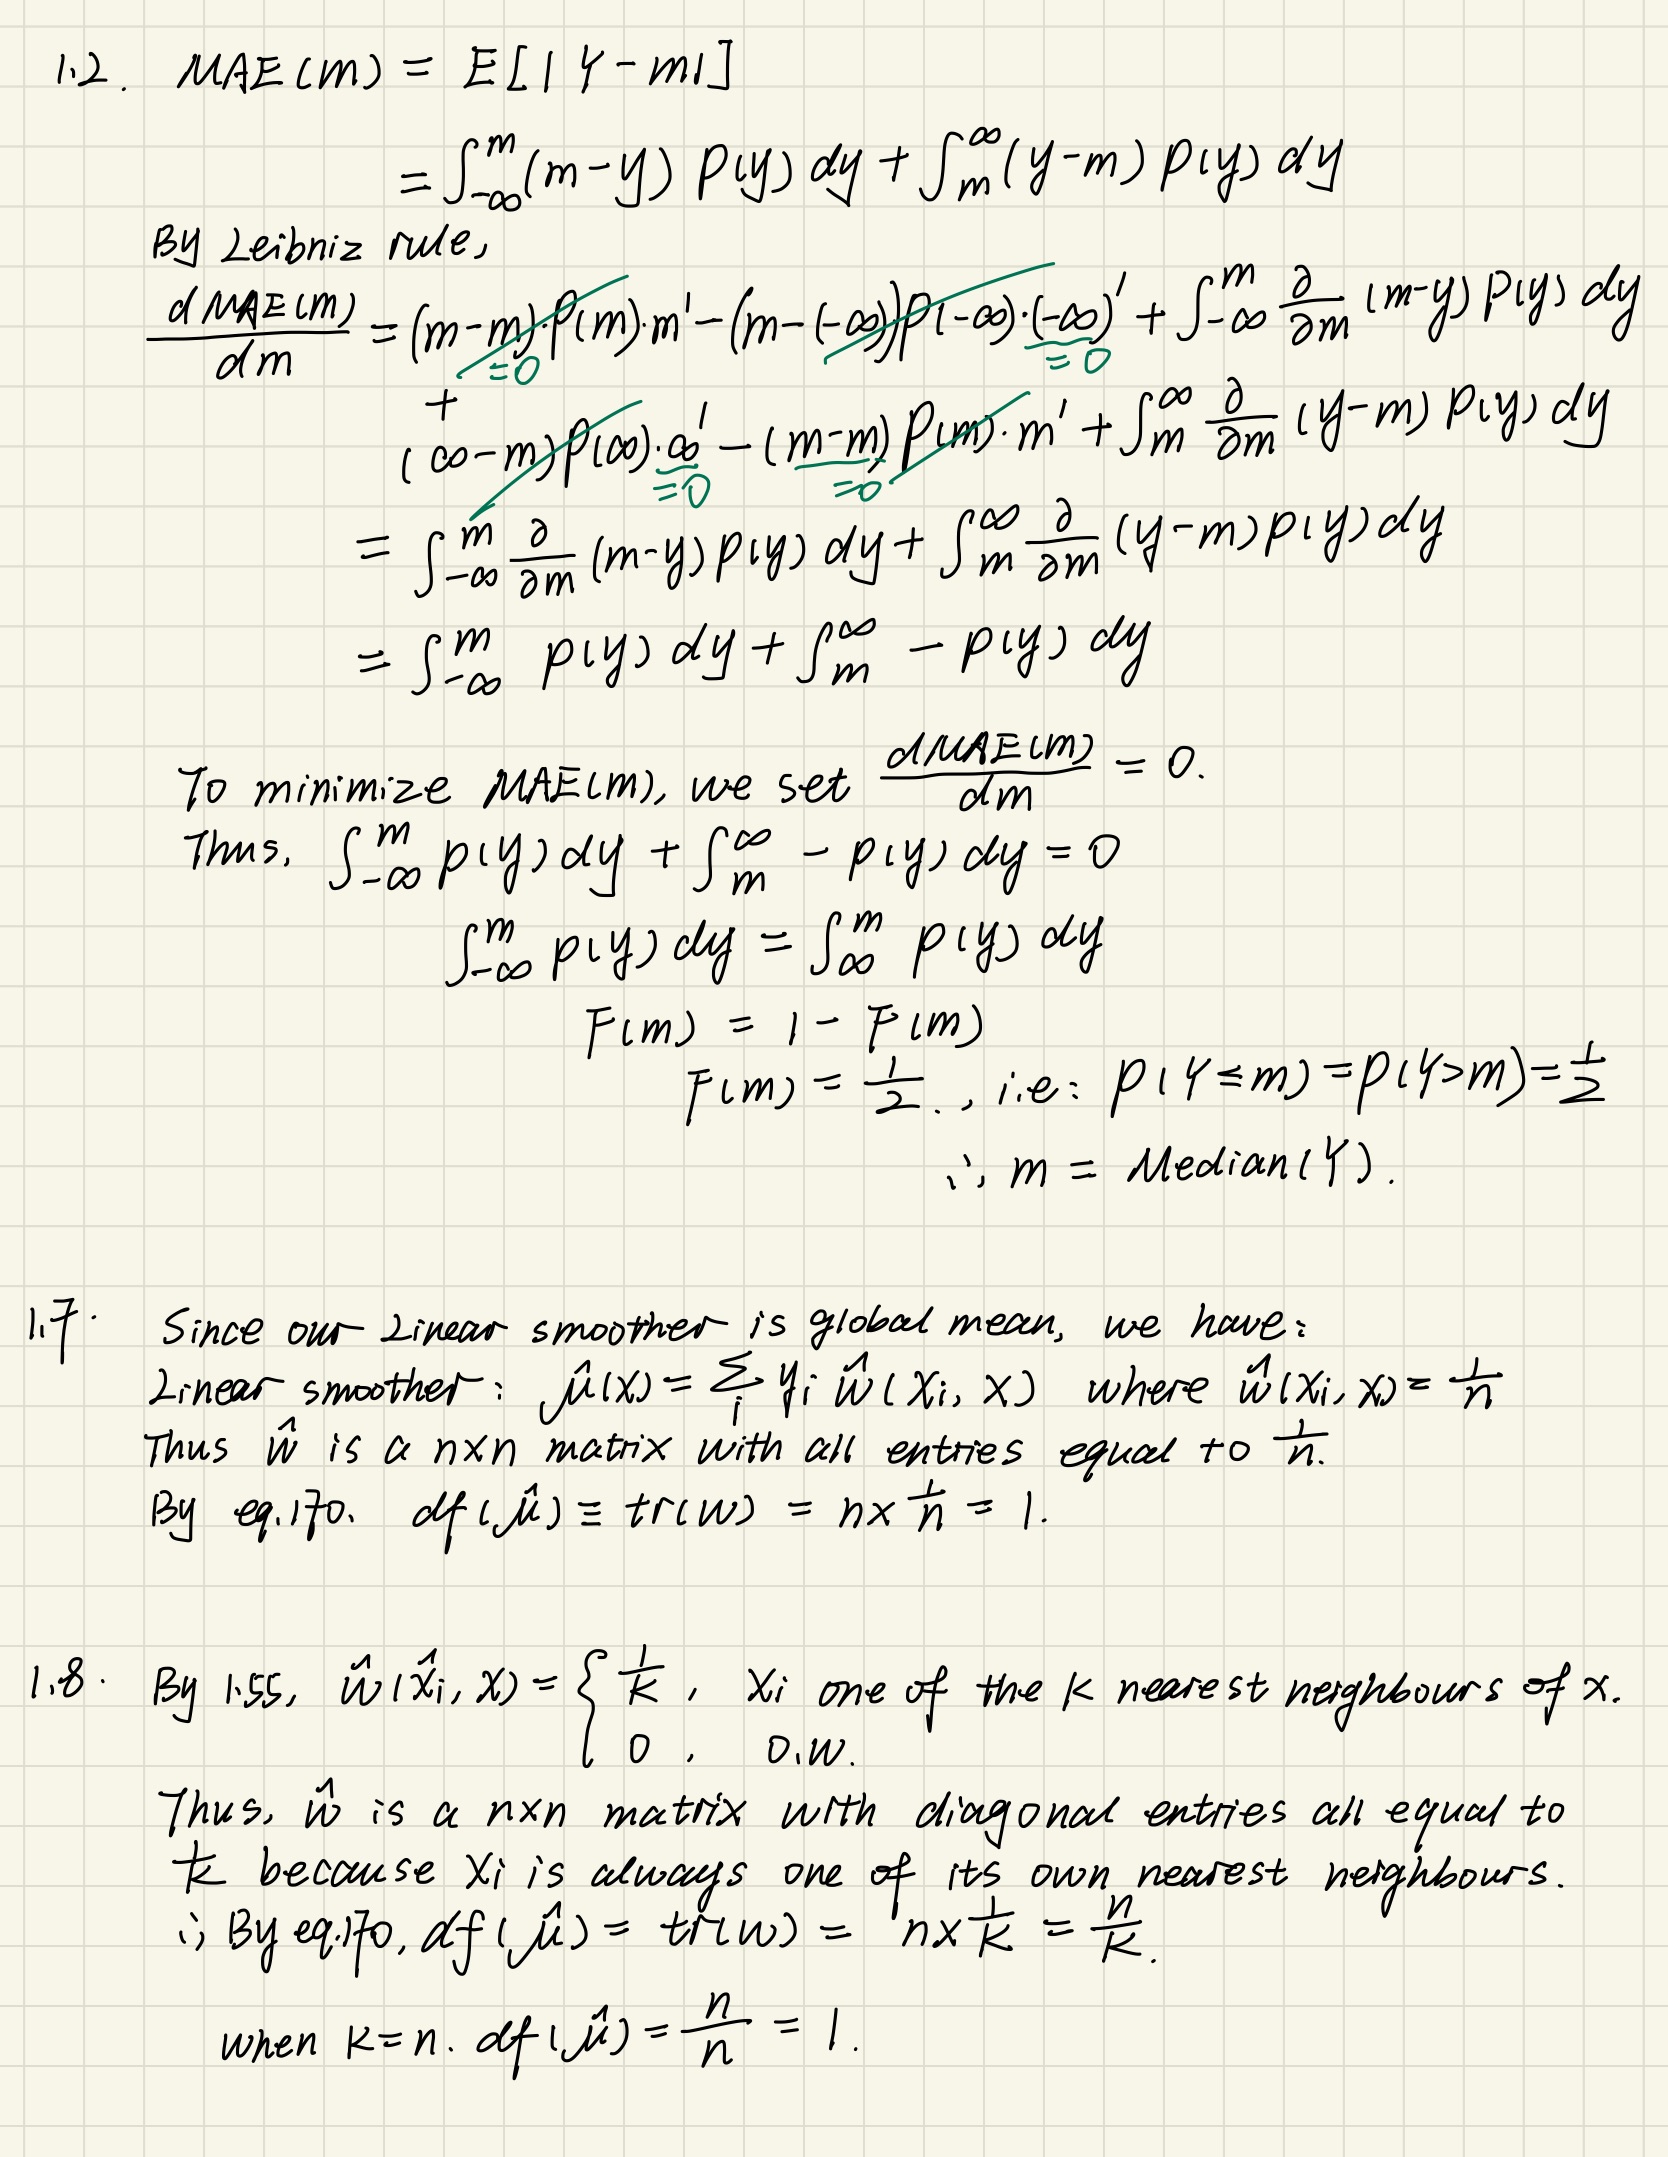 1.2. MAE(m) = E[|Y-m|]
= ∫_{-∞}^{m} (m-y) p(y) dy + ∫_{m}^{∞} (y-m) p(y) dy
By Leibniz rule,
dMAE(m)/dm = (m-m)·p(m)·m' - (m-(-∞))p(-∞)·(-∞)' + ∫_{-∞}^{m} ∂/∂m (m-y) p(y) dy
=0 =0
+
(∞-m)p(∞)·∞' - (m-m) p(m)·m' + ∫_{m}^{∞} ∂/∂m (y-m) p(y) dy
=0 =0
= ∫_{-∞}^{m} ∂/∂m (m-y) p(y) dy + ∫_{m}^{∞} ∂/∂m (y-m) p(y) dy
= ∫_{-∞}^{m} p(y) dy + ∫_{m}^{∞} - p(y) dy
To minimize MAE(m), we set dMAE(m)/dm = 0.
Thus, ∫_{-∞}^{m} p(y) dy + ∫_{m}^{∞} - p(y) dy = 0
∫_{-∞}^{m} p(y) dy = ∫_{∞}^{m} p(y) dy
F(m) = 1 - F(m)
F(m) = 1/2., i.e: P(Y≤m) = P(Y>m) = 1/2
∴ m = Median(Y).
1.7. Since our Linear smoother is global mean, we have:
Linear smoother: μ̂(x) = Σ_i y_i ŵ(x_i, x) where ŵ(x_i, x) = 1/n
Thus ŵ is a n×n matrix with all entries equal to 1/n.
By eq.170. df(μ̂) ≡ tr(w) = n× 1/n = 1.
1.8. By 1.55, ŵ(x̂_i, x) = { 1/k , x_i one of the k nearest neighbours of x.
0 , o.w.
Thus, ŵ is a n×n matrix with diagonal entries all equal to
1/k because x_i is always one of its own nearest neighbours.
∴ By eq.170, df(μ̂) = tr(w) = n× 1/k = n/k.
when k=n. df(μ̂) = n/n = 1.